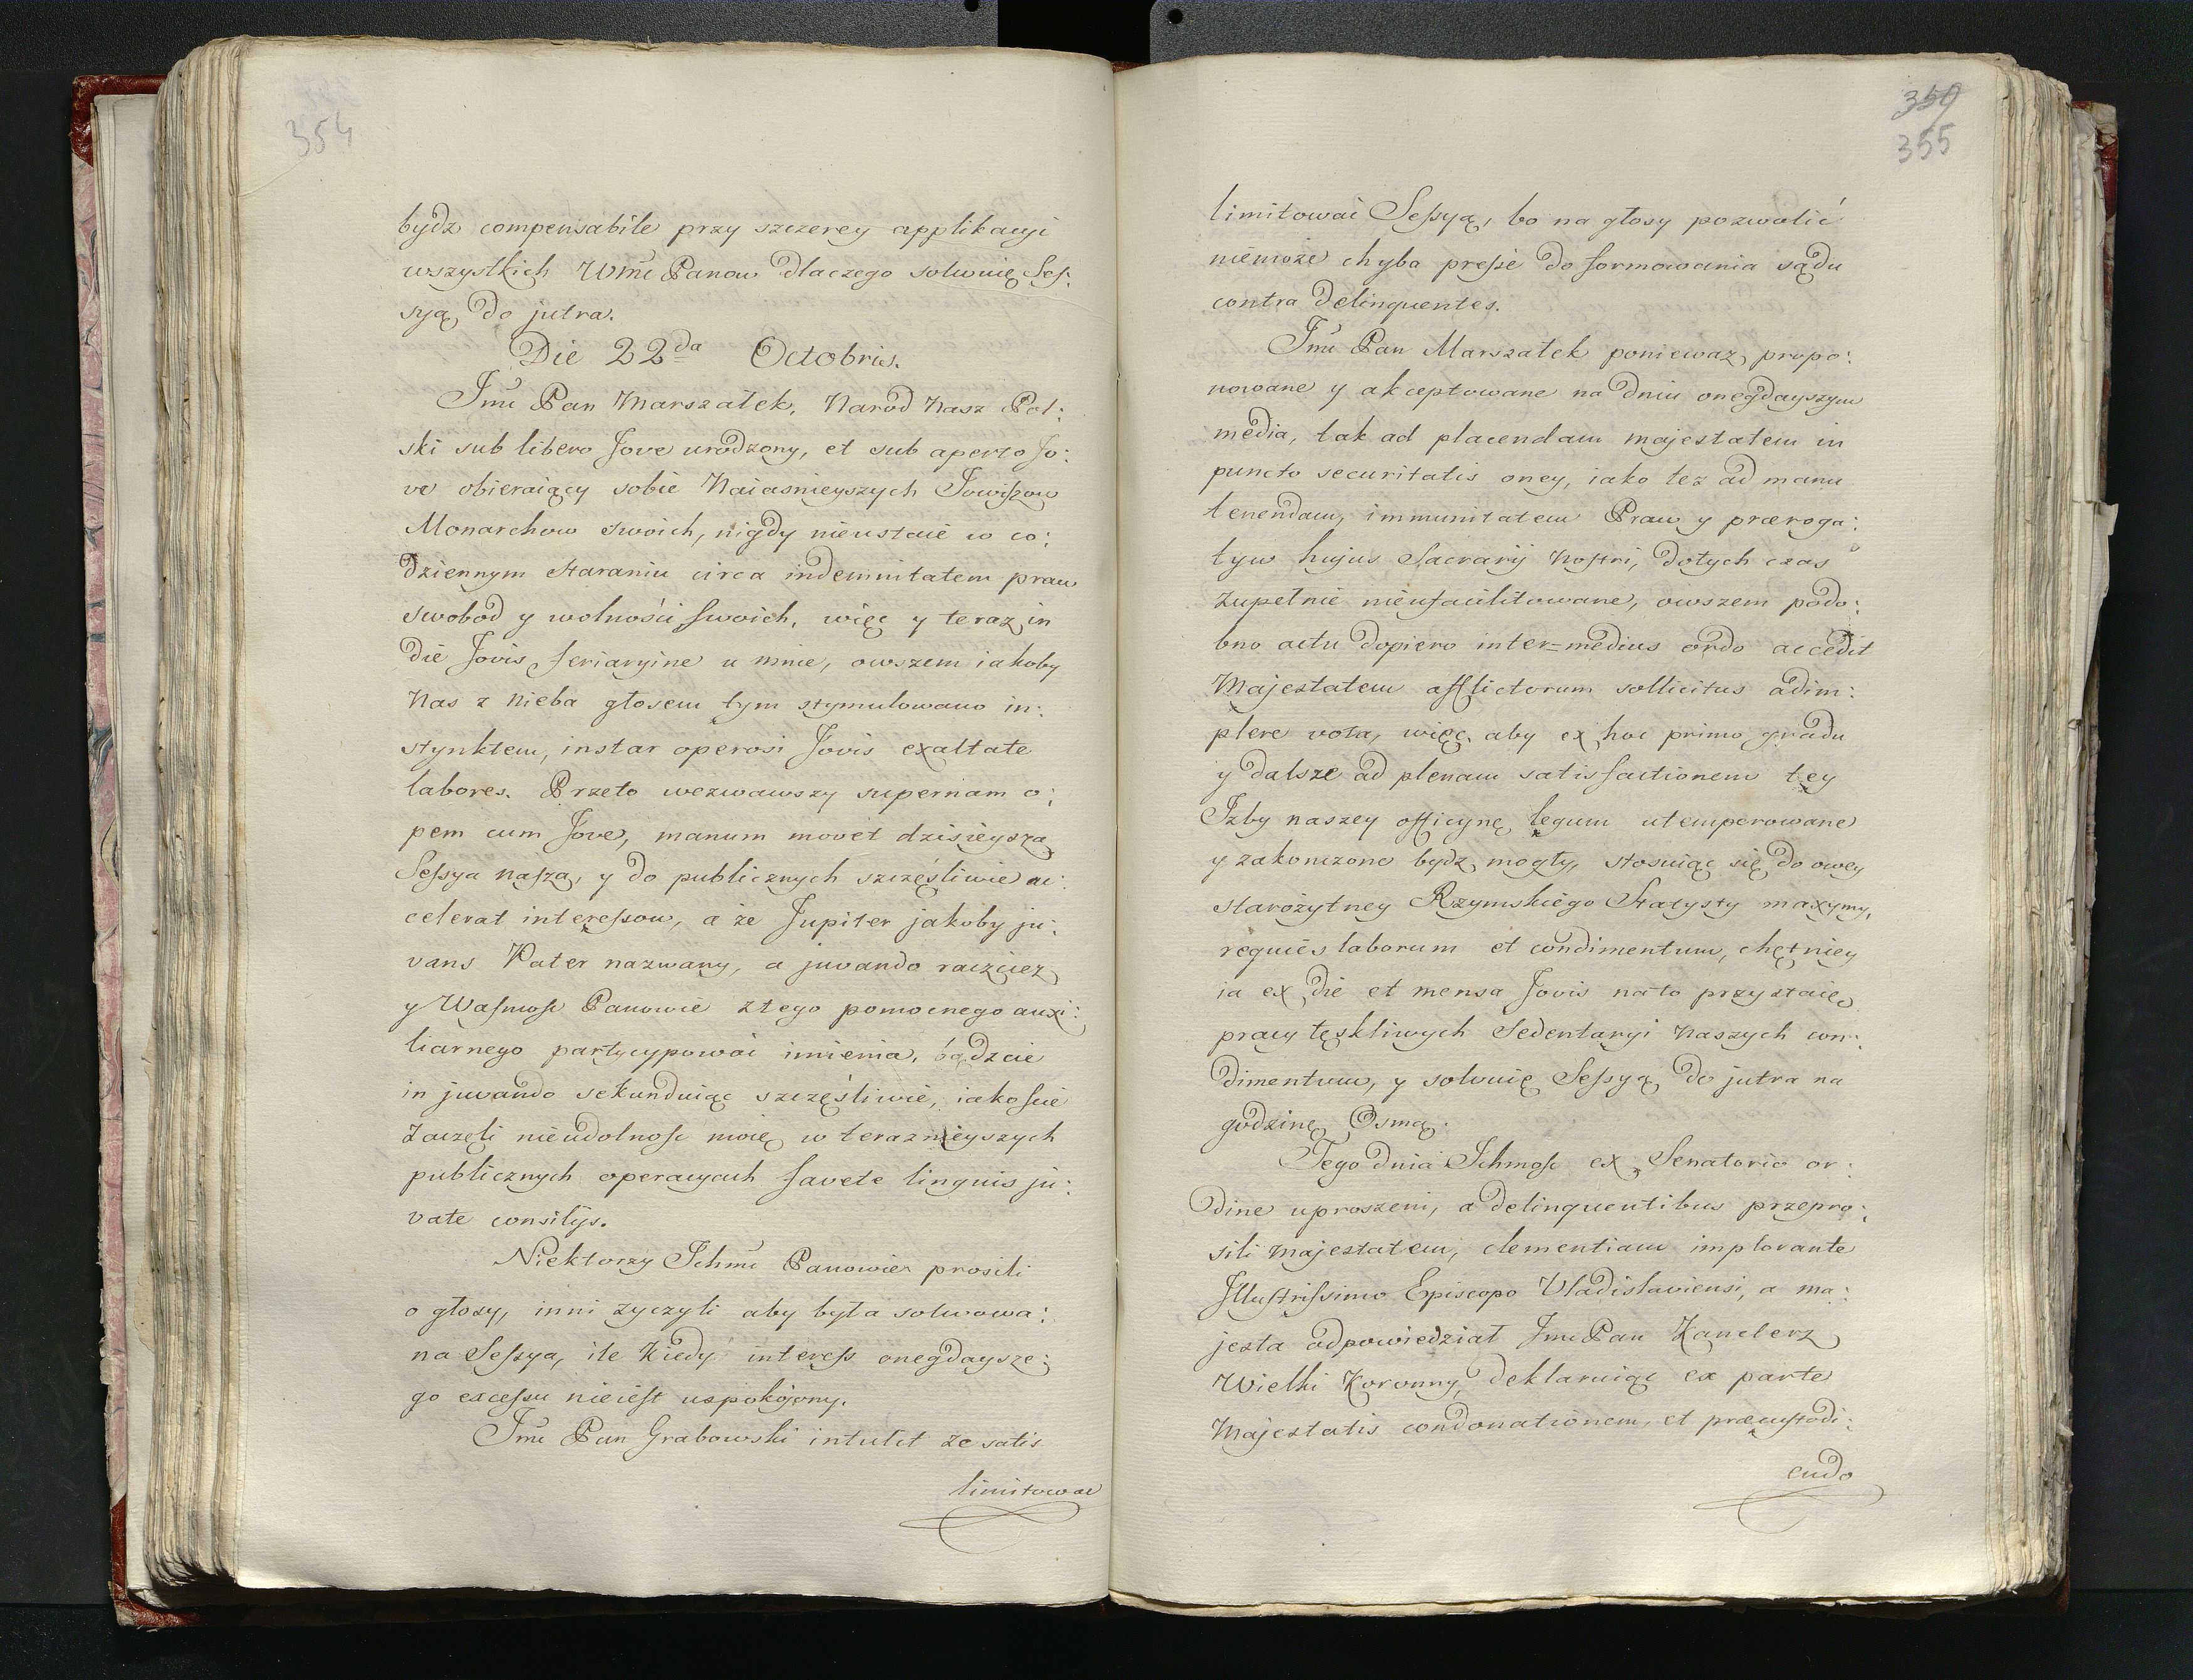 354
bydz compensabile przy szczerey applikacyi
wszystkich Wmć Panow dlaczego solwuię Ses:
syą do jutra.
Die 22da Octobris.
Jmć Pan Marszałek, Narod Nasz Pol:
ski sub libero Jove urodzony, et sub aperto Jo:
ve obieraiący sobie Naiasnieyszych Jowiszow
Monarchow swoich, nigdy nieustaie w co:
dziennym staraniu circa indemnitatem praw
swobod y wolności swoich, więc y teraz in
die Jovis feriaryine u mnie, owszem iakoby
Nas z Nieba głosem tym stymulowano in:
stynktem, instar operosi Jovis exaltate
labores. Przeto wezwawszy supernam o:
pem cum Jove, manum movet dzisieysza
Sessya nasza, y do publicznych szczęśliwie ac:
celerat interessow, a że Jupiter jakoby ju:
vans Pater nazwany, a juvando raczciez
y Wasmosc Panowie z tego pomocnego auxi:
liarnego partycypowac imienia, bądzcie
in juvando sekunduiąc szczęśliwie, iakoscie
Zaczęli nieudolnosc moię w terazniejszych
publicznych operacyach favete linguis ju:
vate consilys.
Niektorzy Ichmć Panowie prosili
o głosy, inni zyczyli aby była solwowa:
na Sessya, ile Kiedy interess onegdaysze:
go excessu nieiest uspokojony.
Jmć Pan Grabowski intulit ze satis
limitowac
359
355
limitowac Sessyą, bo na głosy pozwolić
niemoże chyba presse do formowania sądu
contra delinquentes.
Jmć Pan Marszałek poniewaz propo:
nowane y akceptowane na dniu onegdayszym
media, tak ad placendam majestatem in
puncto securitatis oney, iako tez ad manu
tenendam, immunitatem Praw y præroga:
tyw hujus Sacrarij nostri, dotych czas
Zupełnie nieufacilitowane, owszem podo:
bno actu dopiero inter=medius ordo accedit
Majestatem afflictorum sollicitus adim:
plere vota, więc aby ex hoc primo gradu
y dalsze ad plenam satisfactionem tey
Izby naszey officynę legum utemperowane
y zakonczone bydz mogły, stosuiąc się do owey
starożytney Rzymskiego Statysty maxymy,
requies laborum et condimentum, chętniey
ia ex die et mensa Jovis nato przystaię
pracy tęskliwych Sedentaryi Naszych con:
dimentum, y solwuię Sessyą do jutra na
godzinę Osmą.
Tego dnia Ichmosc ex Senatorio or:
dine uproszeni, a delinquentibus przepro:
sili Majestatem, clementiam implorante
Illustrissimo Episcopo Vladislaviensi, a ma:
jesta odpowiedział Jmć Pan Kanclerz
Wielki Koronny, deklaruiąc ex parte
Majestatis condonationem, et præcustodi:
endo